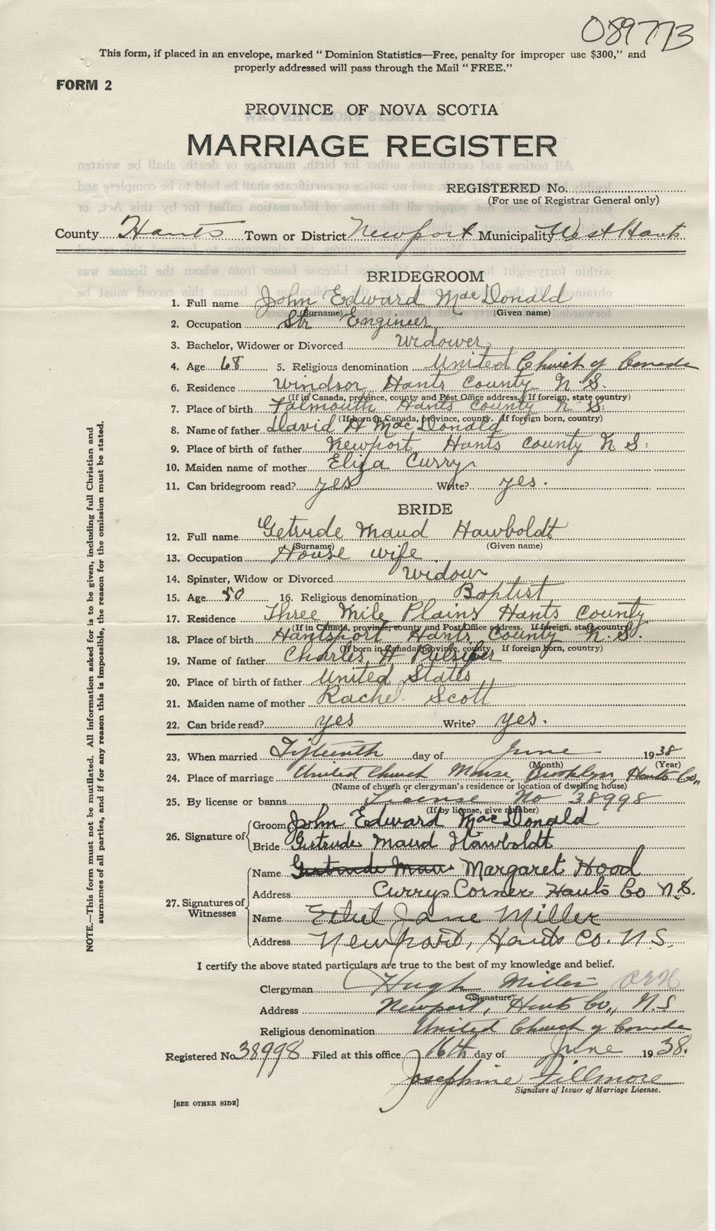 089773
This form, if placed in an envelope, marked "Dominion Statistics—Free, penalty for improper use $300," and
properly addressed will pass through the Mail "FREE."
FORM 2
PROVINCE OF NOVA SCOTIA
MARRIAGE REGISTER
REGISTERED No.
(For use of Registrar General only)
County Hants Town or District Newport Municipality West Hants
BRIDEGROOM
1. Full name John Edward MacDonald
(Surname) (Given name)
2. Occupation Str Engineer
3. Bachelor, Widower or Divorced Widower
4. Age 68 5. Religious denomination United Church of Canada
6. Residence Windsor Hants County N.S.
(If in Canada, province, county and Post Office address. If foreign, state country)
7. Place of birth Falmouth Hants County N S.
(If born in Canada, province, county. If foreign born, country)
8. Name of father David H MacDonald
9. Place of birth of father Newport Hants County N S.
10. Maiden name of mother Eliza Curry
11. Can bridegroom read? yes Write? yes.
BRIDE
12. Full name Getrude Maud Hawboldt
(Surname) (Given name)
13. Occupation House wife
14. Spinster, Widow or Divorced Widow
15. Age 50 16. Religious denomination Baptist
17. Residence Three Mile Plains Hants County
(If in Canada, province, county and Post Office address. If foreign, state country)
18. Place of birth Hantsport Hants County N.S.
(If born in Canada, province, county. If foreign born, country)
19. Name of father Charles H
20. Place of birth of father United States
21. Maiden name of mother Rachel Scott
22. Can bride read? yes Write? yes.
23. When married Fifteenth day of June 1938
(Month) (Year)
24. Place of marriage United Church Manse, Brooklyn, Hants Co.,
(Name of church or clergyman's residence or location of dwelling house)
25. By license or banns License No 38998
(If by license, give number)
26. Signature of Groom John Edward MacDonald
Bride Gertrude Maud Hawboldt
27. Signatures of Witnesses
Name Gertrude Mau Margaret Hood
Address Currys Corner Hants Co N.S.
Name Ethel Jane Miller
Address Newport, Hants Co. N.S
I certify the above stated particulars are true to the best of my knowledge and belief.
Clergyman Hugh Miller
(Signature)
Address Newport, Hants Co., N.S
Religious denomination United Church of Canada
Registered No. 38998 Filed at this office 16th day of June 1938.
Josephine Fillmore
Signature of Issuer of Marriage License.
[SEE OTHER SIDE]
NOTE.—This form must not be mutilated. All information asked for is to be given, including full Christian and
surnames of all parties, and if for any reason this is impossible, the reason for the omission must be stated.